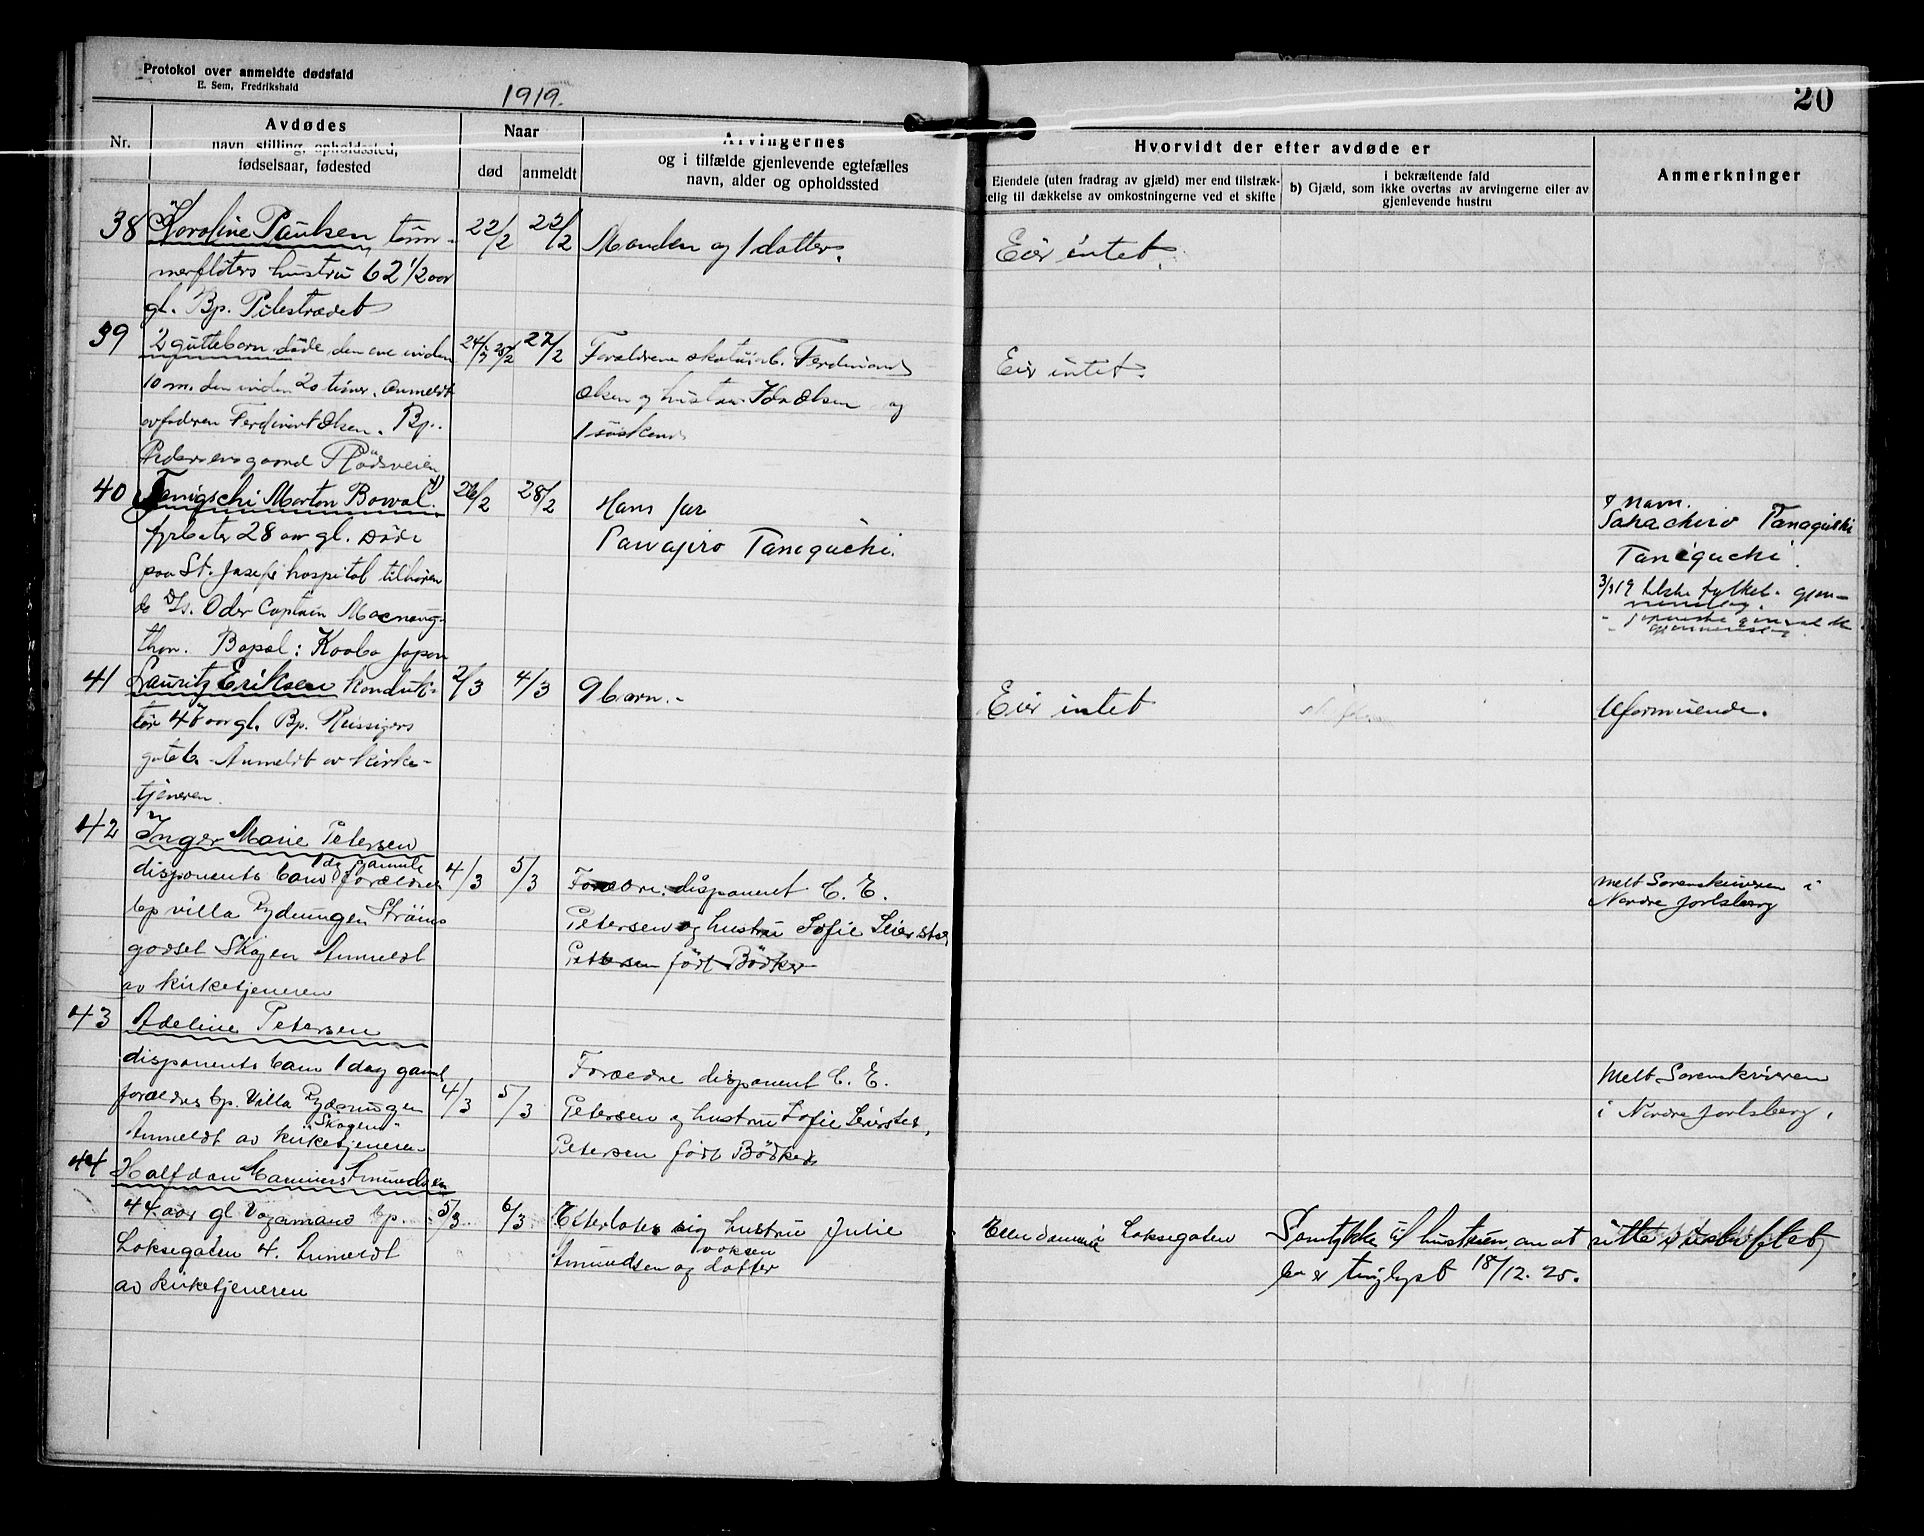 Protokol over anmeldte dødsfald
E. Sem, Fredrikshald
1919.
20
Nr.
Avdødes
navn, stilling, opholdssted,
fødselsaar, fødested
Naar
død
anmeldt
Arvingernes
og i tilfælde gjenlevende egtefælles
navn, alder og opholdssted
Hvorvidt der efter avdøde er
Eiendele (uten fradrag av gjæld) mer end tilstræk-
kelig til dækkelse av omkostningerne ved et skifte
i bekræftende fald
b) Gjæld, som ikke overtas av arvingerne eller av
gjenlevende hustru
Anmerkninger
38 Karoline Paulsen, töm-
merflöters hustru 62 1/2 aar
gl. Bp. Pilestrædet
22/2 22/2
Manden og 1 datter.
Eier intet.
39 2 guttebarn döde, den ene inden
10 m. den inden 20 timer. Anmeldt
av faderen Ferdinert Olsen. Bp.
Pedersensgaard Rödsveien
24/2 25/2 27/2
Forældrene Ferdinand
Olsen og hustru Ida Olsen og
1 söskend
Eier intet.
40 Tenigschi Morton Bowal
fyrböter 28 aar gl. Döde
paa St. Josefs hospital tilhören
de D/s. Oder Captain Macnaug-
thon. Bopæl: Kooba Japan
26/2 28/2
Hans far
Tawajiro Taneguchi.
Navn.
Sahachiro Tanaguchi
Taniguchi.
41 Lauritz Eriksen Konduk-
tör 47 aar gl. Bp. Reissigers
gate 6. Anmeldt av kirke-
tjeneren.
2/3 4/3
9 barn.-
Eier intet
Uformuende.
42 Inger Marie Petersen
disponents barn 1 dag gamle forældres
bp villa Rydningen Ströms
godset Skogen Anmeldt
av kirketjeneren
4/3 5/3
Forældre. disponent C. E.
Petersen og hustru Sofie Leierstet
Petersen född Bödker
Melt Sorenskriveren i
Nordre Jarlsberg
43 Adeline Petersen
disponents barn 1 dag gamel
forældres bp. Villa Rydningen
"Skogen"
Anmeldt av kirketjeneren
4/3 5/3
Forældre disponent C. E.
Petersen og hustru Sofie Leierstet,
Petersen född Bödker
Melt Sorenskriveren
i Nordre Jarlsberg,
44 Halfdan Amundsen
44 aar gl Vognmand bp.
Losegaten 4. Anmeldt
av kirketjeneren
5/3. 6/3
Efterlater sig hustru Julie
Amundsen og voksen datter
Eiendommen i Losegaten
Samtykke til hustruen, om at sitte i uskiftet
bo er tinglyst 18/12. 25.